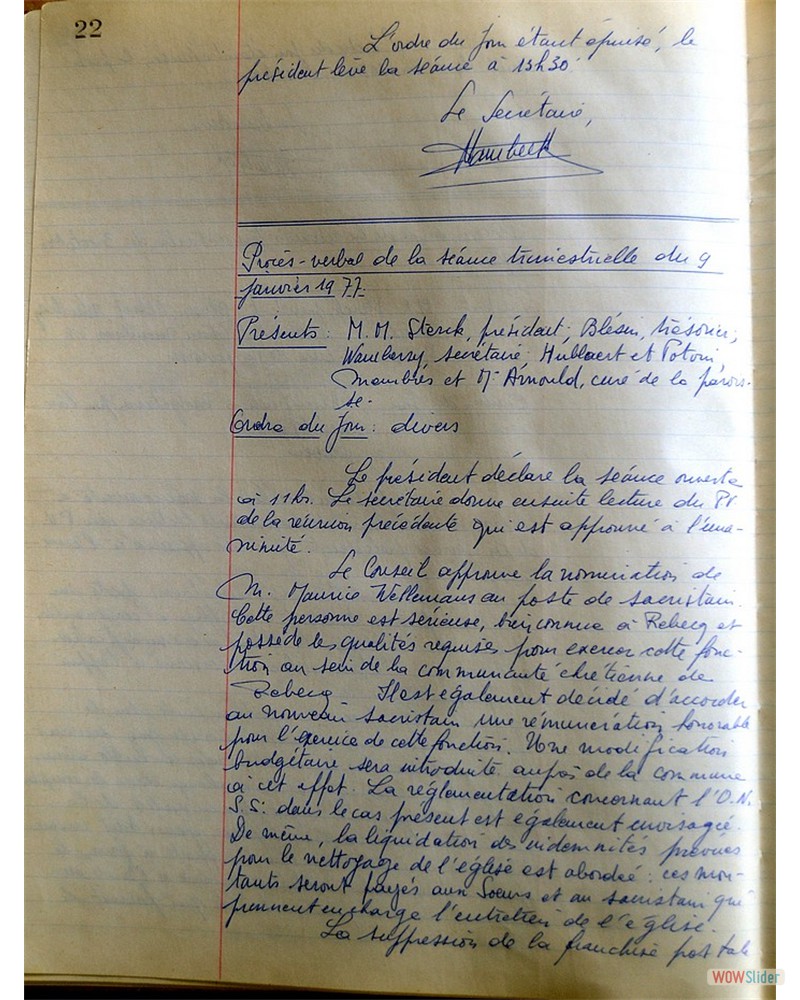 22
L'ordre du jour étant épuisé, le
président lève la séance à 13h30
Le Secrétaire,
Procès-verbal de la séance trimestrielle du 9
janvier 1977.
Présents : M.M. Sterck, président; Blésin, trésorier;
secrétaire; Hubbaert et Potvin,
membres et Mr Arnould, curé de la parois-
se.
Ordre du jour : divers
Le président déclare la séance ouverte
à 11hs. Le secrétaire donne ensuite lecture du PV
de la réunion précédente qui est approuvé à l'una-
nimité.
Le Conseil approuve la nomination de
M. Maurice Wellemans au poste de sacristain.
Cette personne est sérieuse, bien connue à Rebecq et
possède les qualités requises pour exercer cette fonc-
tion au sein de la communauté chrétienne de
Rebecq. Il est également décidé d'accorder
au nouveau sacristain une rémunération honorable
pour l'exercice de cette fonction. Une modification
budgétaire sera introduite auprès de la commune
à cet effet. La réglementation concernant l'O.N.
S.S. dans le cas présent est également envisagée.
De même, la liquidation des indemnités prévues
pour le nettoyage de l'église est abordée : ces mon-
tants seront payés aux Soeurs et au sacristain qui
prennent en charge l'entretien de l'église.
La suppression de la franchise postale
WOWSlider